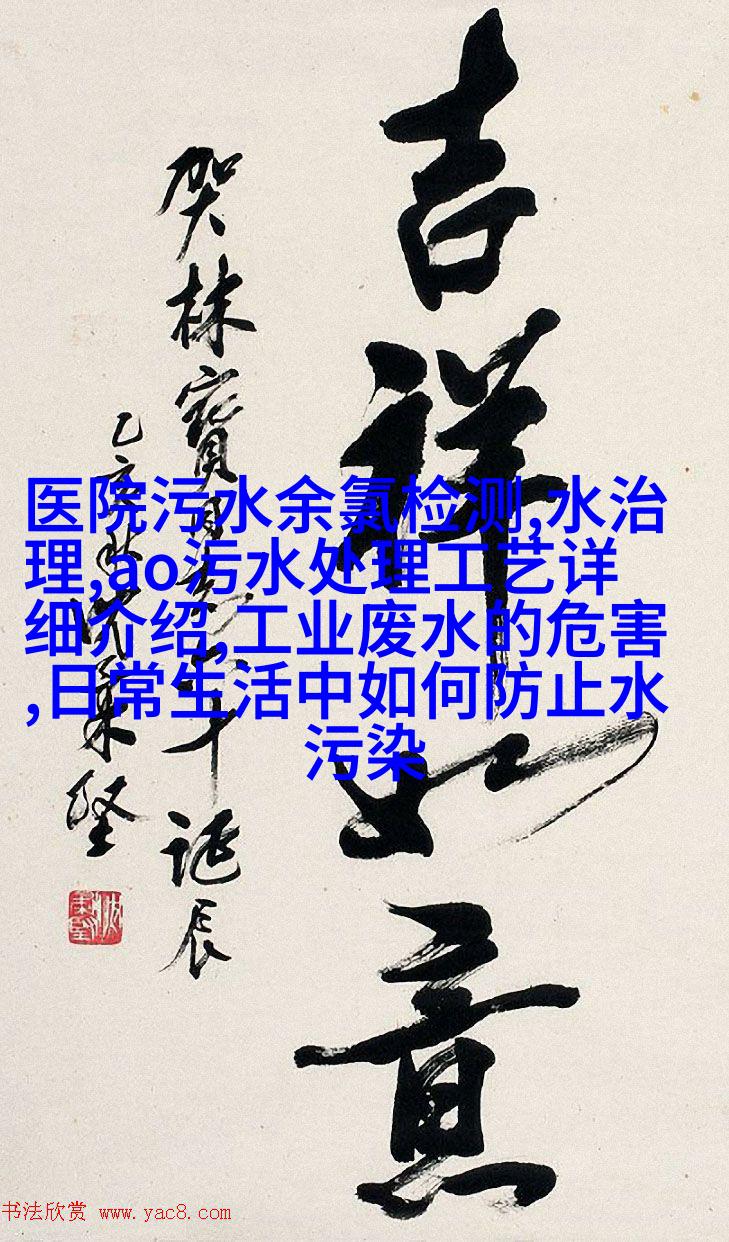 吉祥如意
贺林宝月九十诞辰
乙亥秋沈秉坚
医院污水余氯检测,水治
理,ao污水处理工艺详
细介绍,工业废水的危害
,日常生活中如何防止水
污染
书法欣赏 www.yac8.com